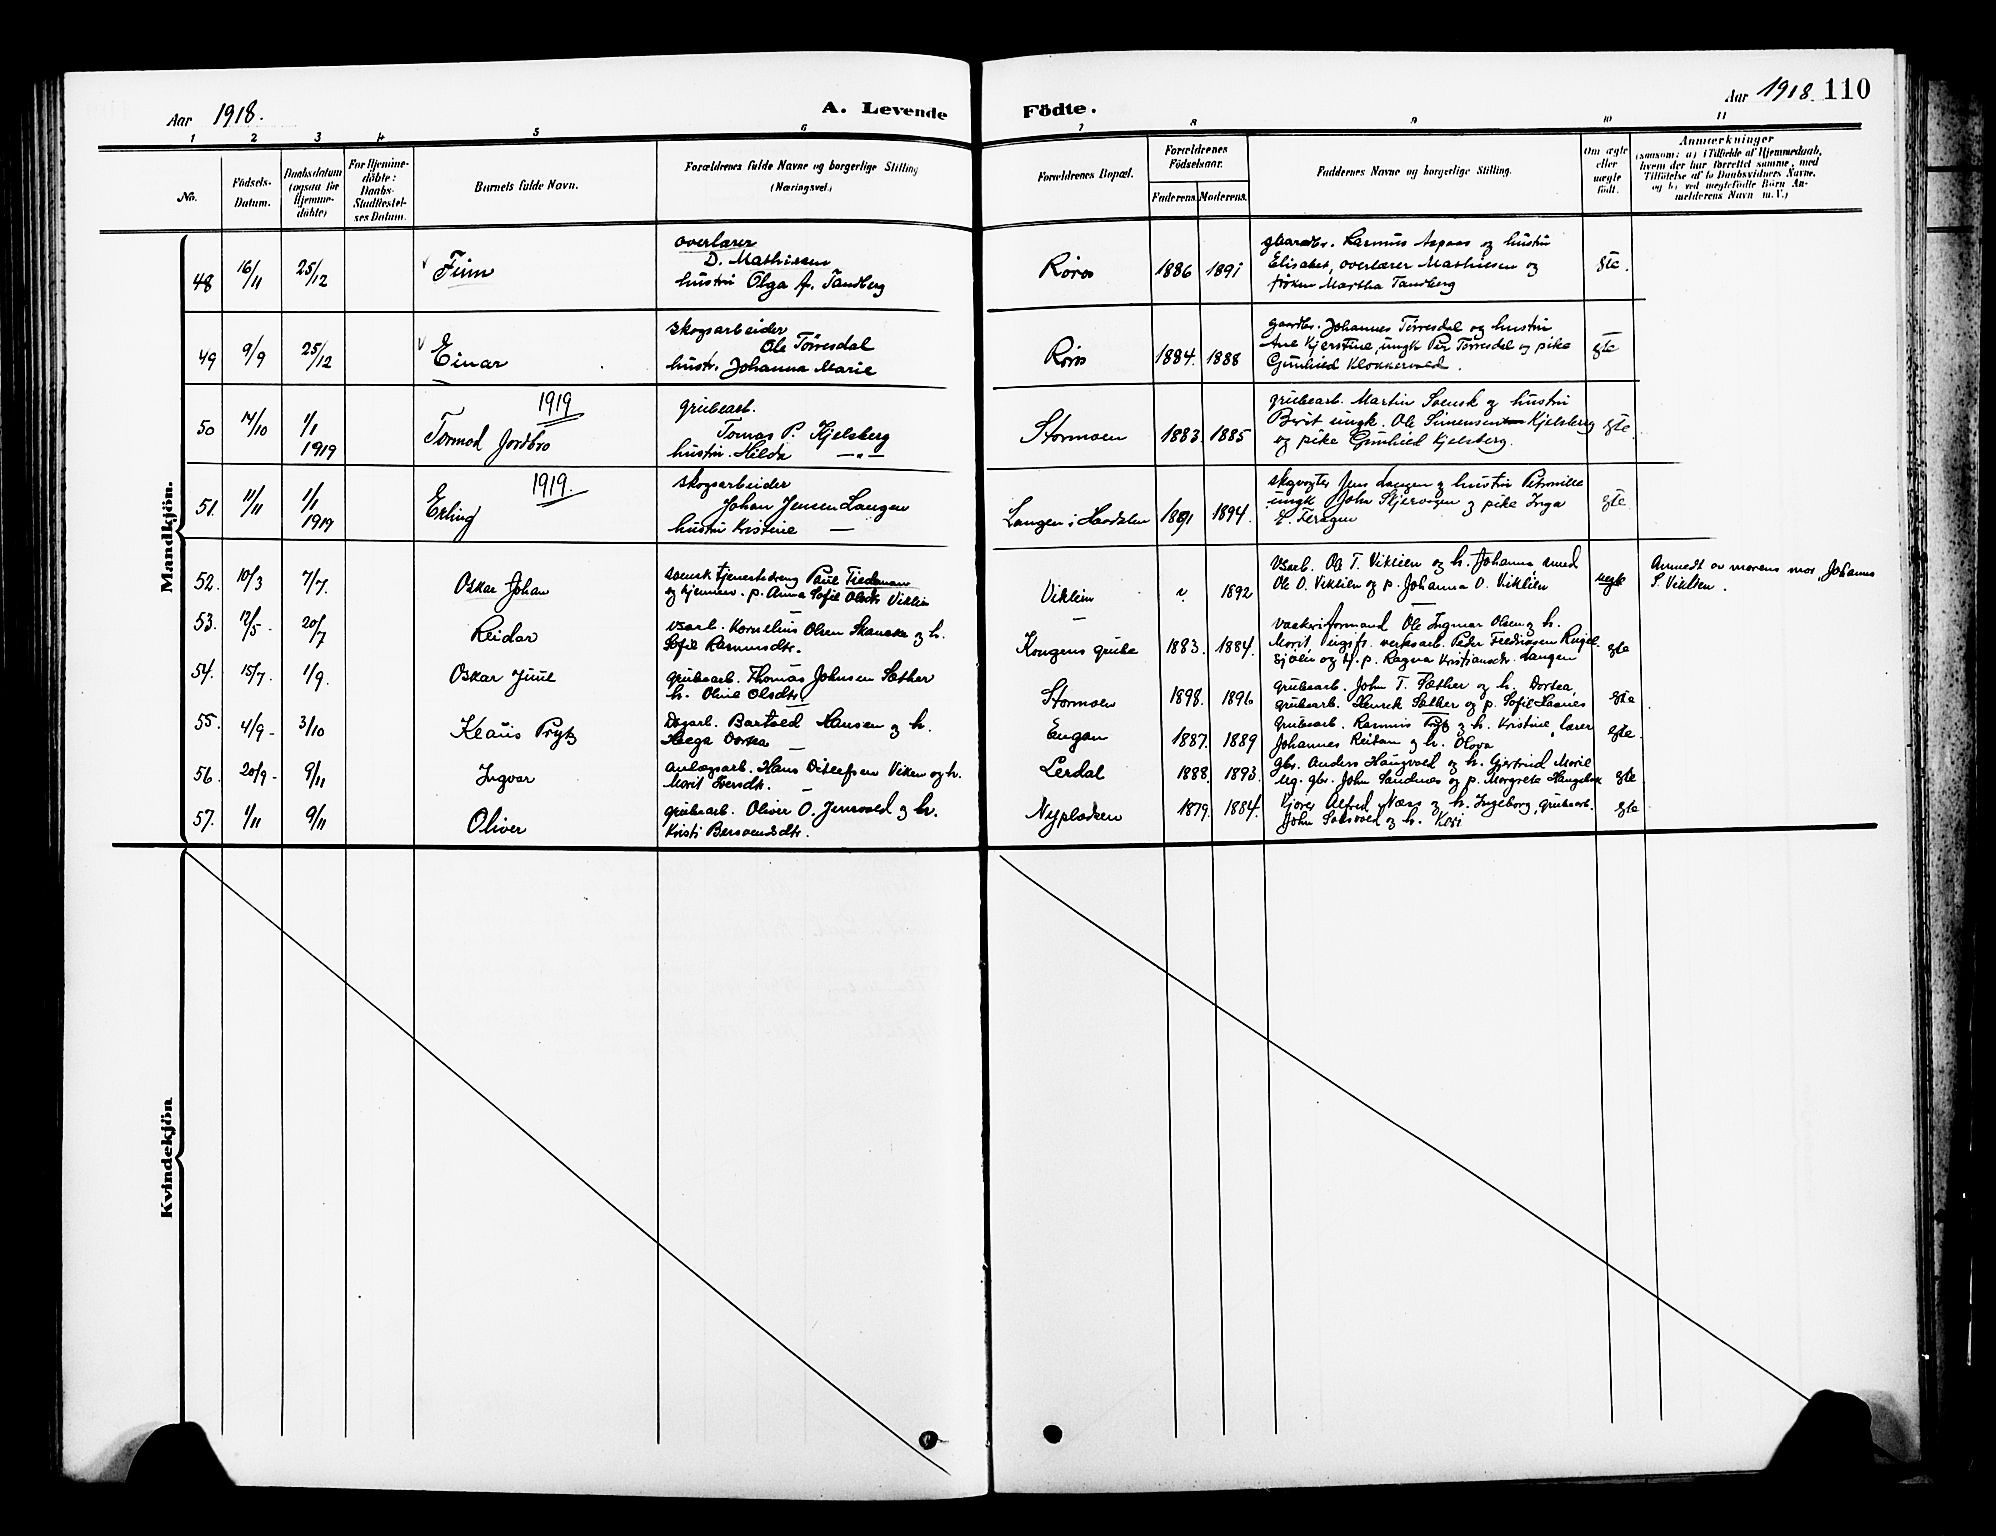 Aar 1918.
A. Levende Födte.
Aar 1918. 110
1 2 3 4 5 6 7 8 9 10 11
No.
Födsels-
Datum.
Daabsdatum
(ogsaa for
Hjemme-
døbte)
For Hjemme-
døbte:
Daabs-
Stadfæstel-
ses Datum.
Barnets fulde Navn.
Forældrenes fulde Navne og borgerlige Stilling
(Næringsvei.)
Forældrenes Bopæl.
Forældrenes
Födselsaar.
Faderens. Moderens.
Faddernes Navne og borgerlige Stilling.
Om ægte
eller
uægte
født.
Anmærkninger
(saasom: a) i Tilfælde af Hjemmedaab,
hvem der har forrettet samme, med
Tilføielse af to Daabsvidners Navne,
og b) ved uægtefødte Børn An-
melderens Navn m.V.)
Mandkjön.
48 16/11 25/12 Finn
overlærer
D. Mathiesen
hustru Olga f. Tandberg
Röros 1886 1891
gaardbr. Rasmus Aspaas og hustru
Elisabet, overlærer Mathiesen og
frøken Martha Tandberg
gte.
49 9/9 25/12 Einar
skogsarbeider
Ole Törresdal
hustr. Johanna Marie
Röros 1884. 1888
gaardbr. Johannes Törresdal og hustru
Ane Kjerstine, ungk Per Törresdal og pike
Gunhild Klokkervold.
gte
50 14/10 1/1 1919 1919
Tormod Jordbro
grubearb.
Tomas P. Kjelsberg
hustru Hilda —"—
Stormoen 1883. 1885
grubearb. Martin Svensk og hustru
Brit ungk. Ole Simensen Kjelsberg
og pike Gunhild Kjelsberg.
gte.
51. 11/11 1/1 1919 1919.
Erling
skogsarbeider
Johan Jensen Langen
hustru Kristine —
Langen i Haadalen 1891 1894.
skogvogter Jens Langen og hustru Petronille
ungk John Skjervagen og pike Inga
E. Feragen
gte.
52. 10/3 7/7. Oskar Johan
svensk tjenestedreng Paul Tiedeman
og hjemmev. p. Anna Sofie Olsdtr Viklien
Viklien 1892
Vsarb. Ole T. Viklien og h. Johanna, smed
Ole O. Viklien og p. Johanna O. Viklien
uegte
Anmeldt av morens mor, Johanna
S. Viklien.
53. 12/5. 20/7 Reidar
vsarb. Kornelius Olsen Skancke og h.
Sofie Rasmusdtr.
Kongens grube 1883. 1884.
vaskeriformand Ole Ingmar Olsen og h.
Morit, ugift verksarb. Peder Fredriksen Rugel-
sjöen og p. Ragna Kristiansdtr. Langen
gte
54. 15/7. 1/9. Oskar Juul
grubearb. Thomas Johnsen Sæther
h. Oline Olsdtr
Stormoen 1898. 1896
grubearb. John T. Sæther og h. Dortea,
grubearb. Henrik Sæther og p. Sofie Haanes
gte
55. 4/9. 3/10 Klaus Prytz
Dagarb. Bartold Hansen og h.
Helga Dortea —
Engan 1887. 1889
grubearb. Rasmus Prytz og h. Kristine, lærer
Johannes Reitan og h. Olova
gte.
56. 20/9. 9/11 Ingvar
anlægsarb. Hans Ditlefsen Viken og h.
Morit Iversdtr.
Lerdal 1888. 1893.
gbr. Anders Haugvold og h. Gjertrud Morit
ug. gbr. John Sandnes og p. Margrete
gte
57. 1/11 9/11 Oliver
grubearb. Oliver O. Jensvold og h.
Kristi Bersvendsdtr.
Nypladsen 1879. 1884.
kjörer Alfred Næss og h. Ingeborg, grubearb.
John Solsvold og h. Kari
gte
Kvindekjön